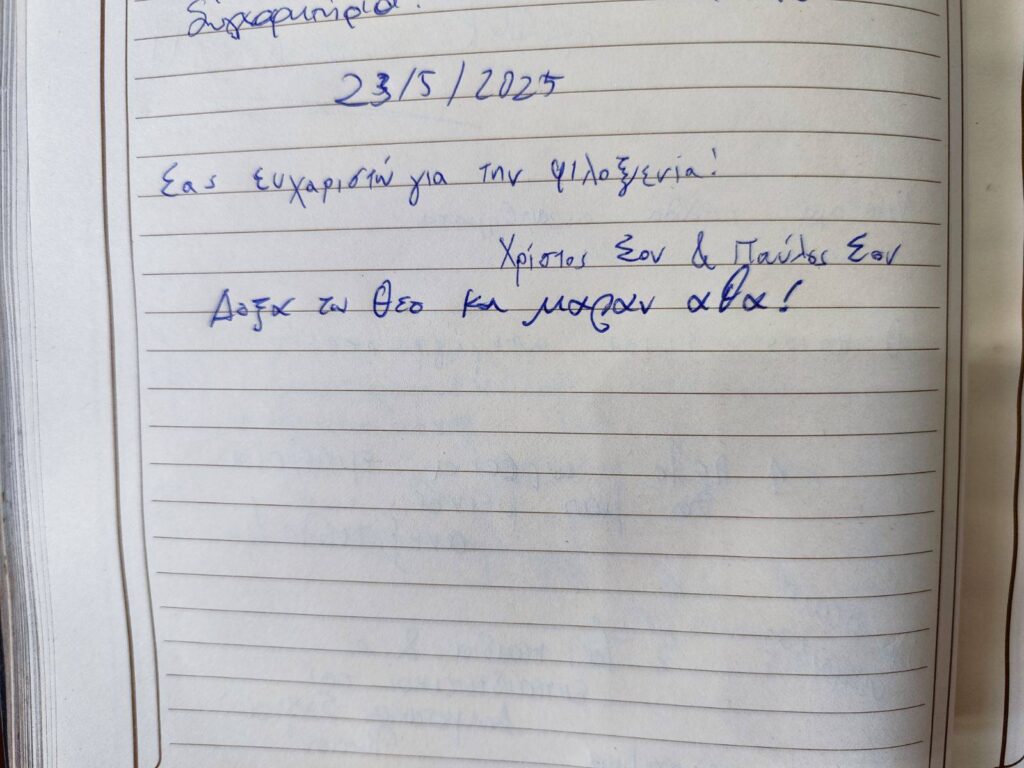 Συγχαρητήρια!
23/5/2025
Σας ευχαριστώ για την φιλοξενία!
Χρίστος Σον & Παύλος Σον
Δοξα τω Θεο και μαραν αθα!